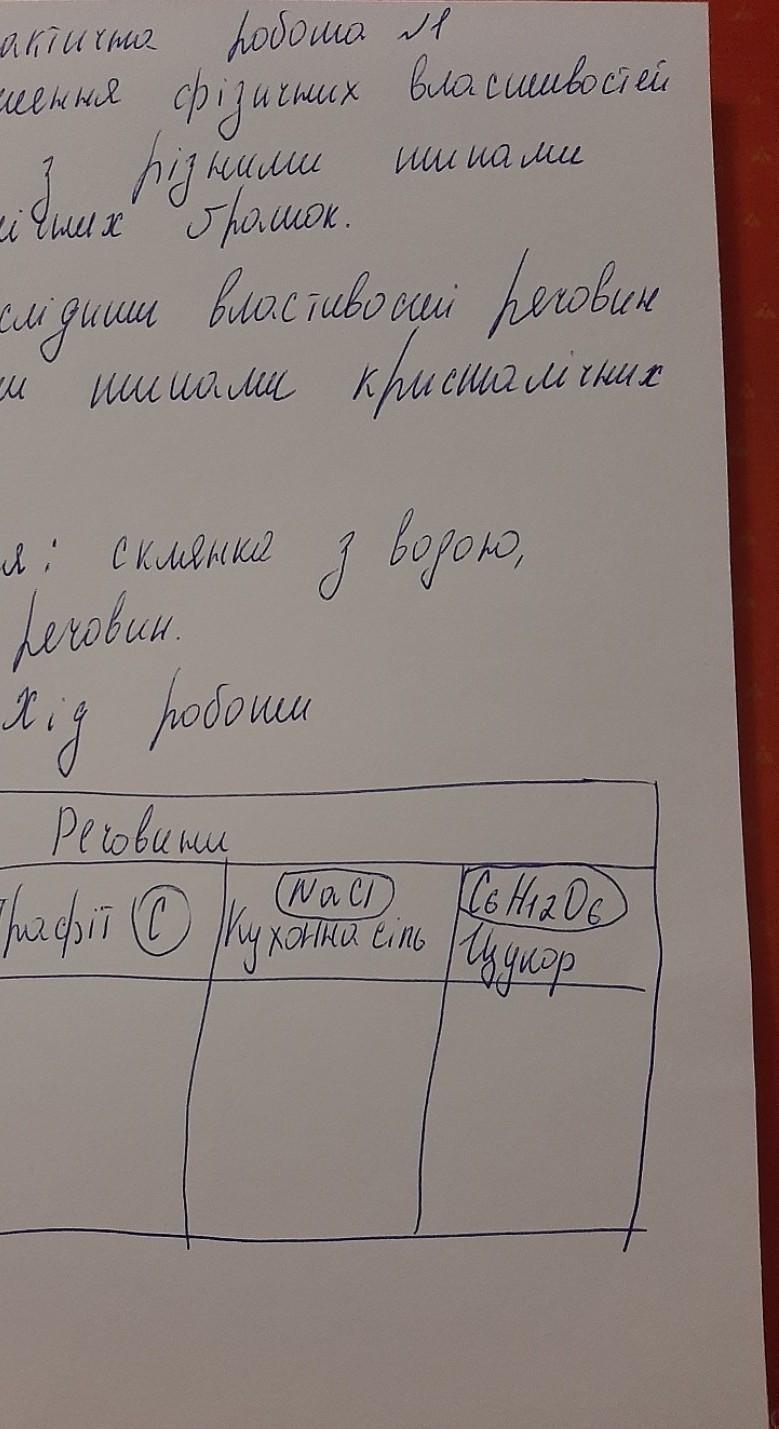 актична робота №1
шення фізичних властивостей
з різними типами
ічних ґраток.
слідити властивості речовин
и типами кристалічних
я: склянка з водою,
речовин.
Хід роботи
Речовини
Графіт C
NaCl
Кухонна сіль
C6H12O6
Цукор